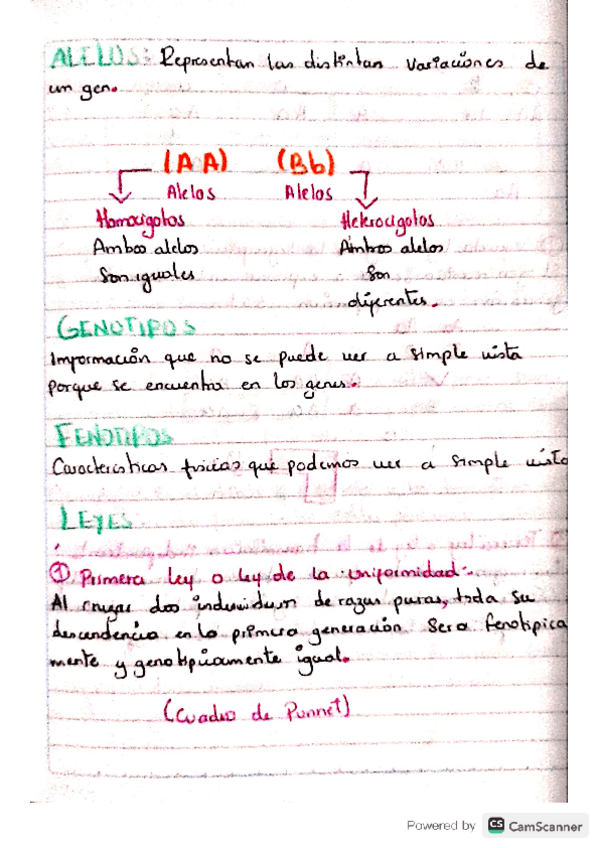 ALELOS: Representan las distintan variaciones de
un gen.
(AA) (Bb)
Alelos Alelos
Homocigotos Heterocigotos
Ambos alelos Ambos alelos
Son iguales Son
diferentes.
GENOTIPOS
Información que no se puede ver a simple vista
porque se encuentra en los genes.
FENOTIPOS
Características físicas que podemos ver a simple vista
LEYES
① Primera ley o ley de la uniformidad:
Al cruzar dos individuos de razas puras, toda su
descendencia en la primera generación Sera fenotipica
mente y genotipicamente igual.
(Cuadro de Punnet)
Powered by CS CamScanner